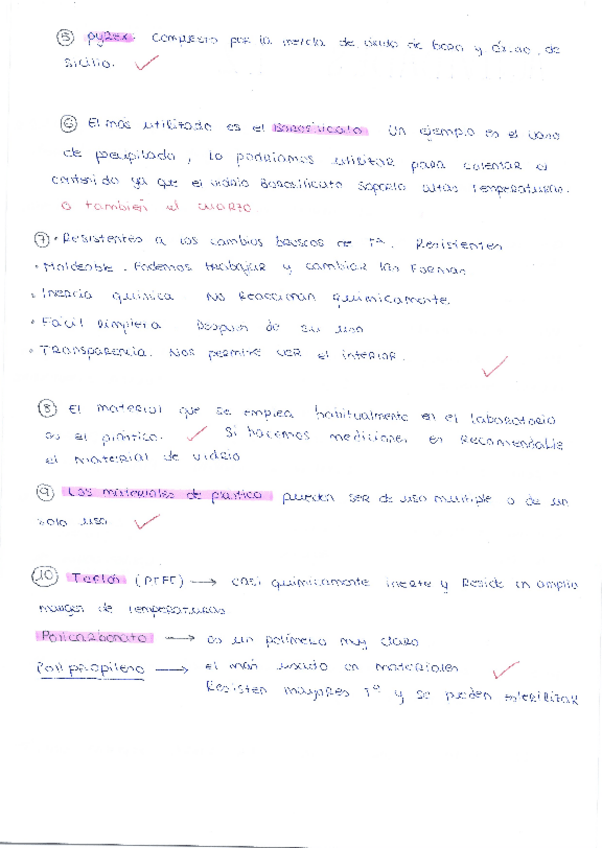 ⑤ Pyrex. Compuesto por la mezcla de óxido de boro y óxido de
silicio.
⑥ El más utilizado es el Borosilicato Un ejemplo es el vaso
de precipitado, lo podriamos utilizar para calentar el
contenido ya que el vidrio Borosilicato soporta altas temperaturas.
o también el cuarzo
⑦ • Resistentes a los cambios bruscos de Tª. Resistentes
• Moldeable. Podemos trabajar y cambiar las formas
• Inercia química No Reaccionan químicamente.
• Fácil limpieza Despues de su uso
• Transparencia. Nos permite ver el interior.
⑧ El material que se emplea habitualmente en el laboratorio
es el plástico. Si hacemos mediciones es Recomendable
el material de vidrio
⑨ Los materiales de plastico pueden ser de uso multiple o de un
solo uso
⑩ Teflón (PTFE) → casi químicamente inerte y Reside en amplio
margen de temperaturas
Policarbonato → es un polímero muy claro
Polipropileno → el más usado en materiales
Resisten mayores Tª y se pueden esterilizar